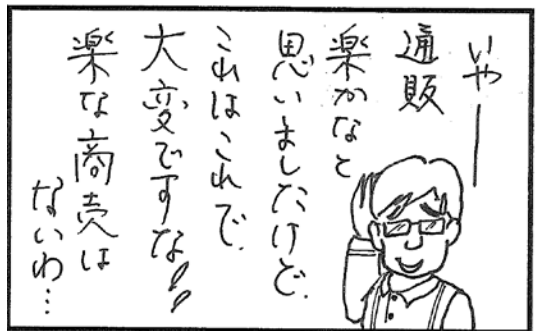 いやー
通販
楽かなと
思いましたけど、
これはこれで、
大変ですな!!
楽な商売は
ないわ…